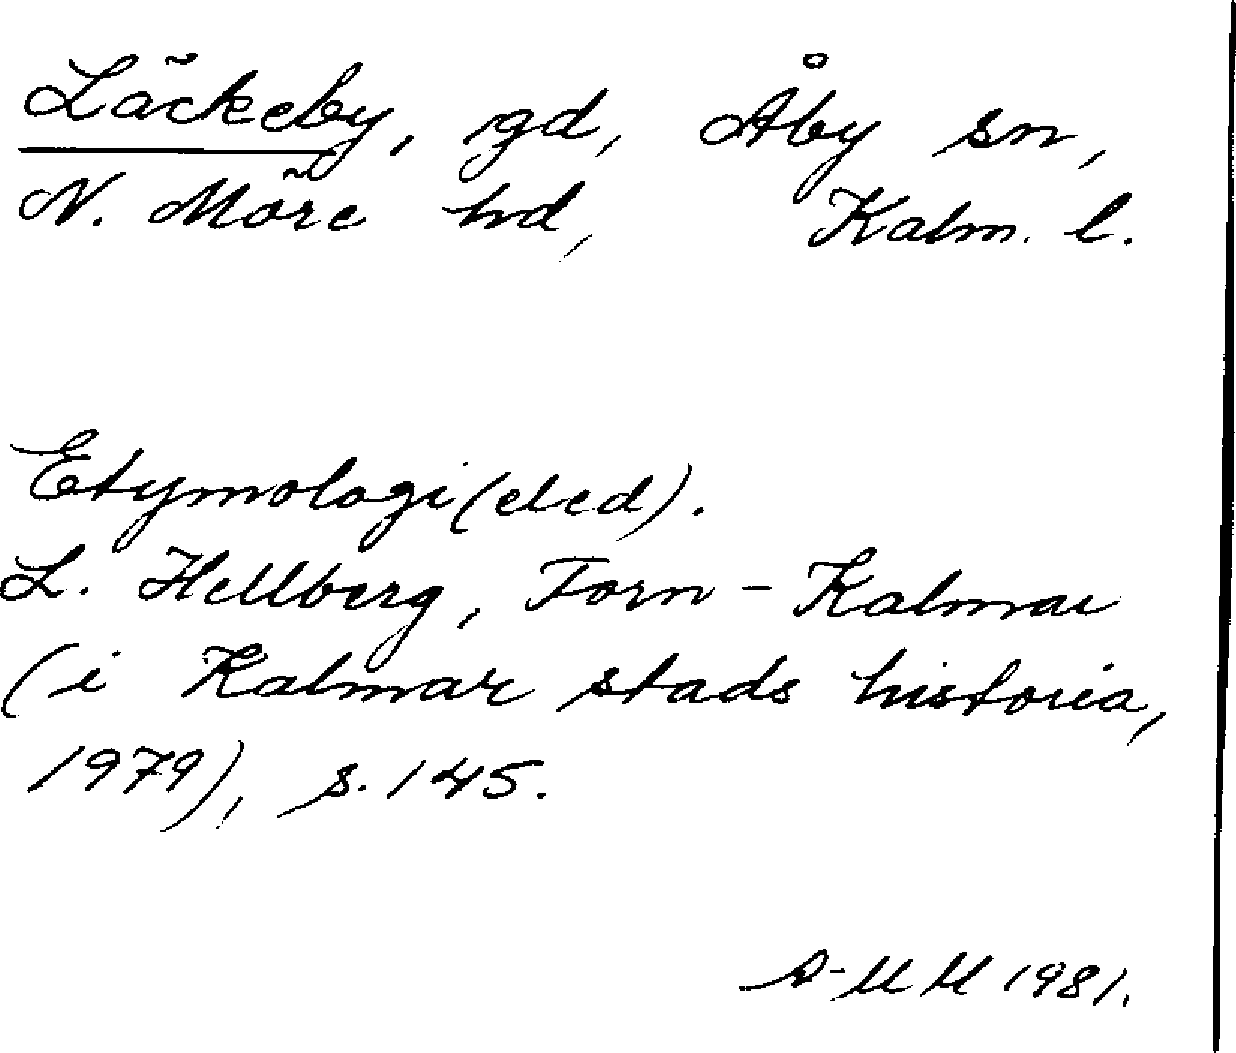 Läckeby, gd, Åby sn,
N. Möre hd, Kalm. l.
Etymologi (eled).
L. Hellberg, Forn-Kalmar
(i Kalmar stads historia,
1979), s. 145.
A-MM 1981.